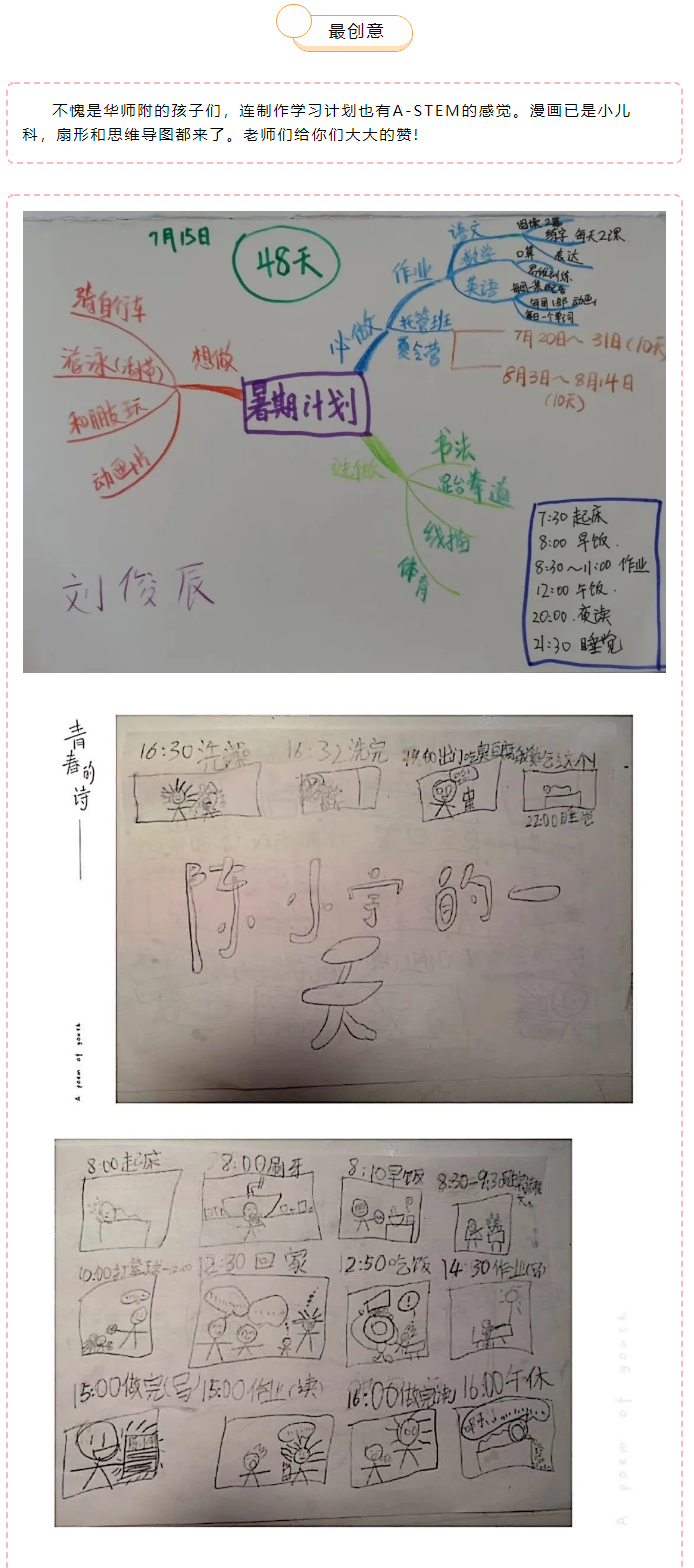 最创意
不愧是华师附的孩子们，连制作学习计划也有A-STEM的感觉。漫画已是小儿
科，扇形和思维导图都来了。老师们给你们大大的赞!
7月15日
48天
暑期计划
想做
骑自行车
游泳
和朋友玩
动画片
必做
作业
语文
练字 每天2课
数学
口算 表达
英语
每日一个单词
托管班
夏令营
7月20日～31日(10天
8月3日～8月14日
(10天)
选做
书法
跆拳道
线描
体育
刘俊辰
7:30 起床
8:00 早饭.
8:30～11:00 作业
12:00 午饭.
20:00.夜读
21:30 睡觉
青春的诗
A poem of youth
16:30洗澡
16:32洗完
22:00睡觉
陈小宇的一
天
8:00起床
8:00刷牙
8:10早饭
8:30-9:3
12:30回家
12:50吃饭
14:30作业(写)
15:00做完(写)
15:00作业(读)
16:00做完读
16:00午休
A poem of youth